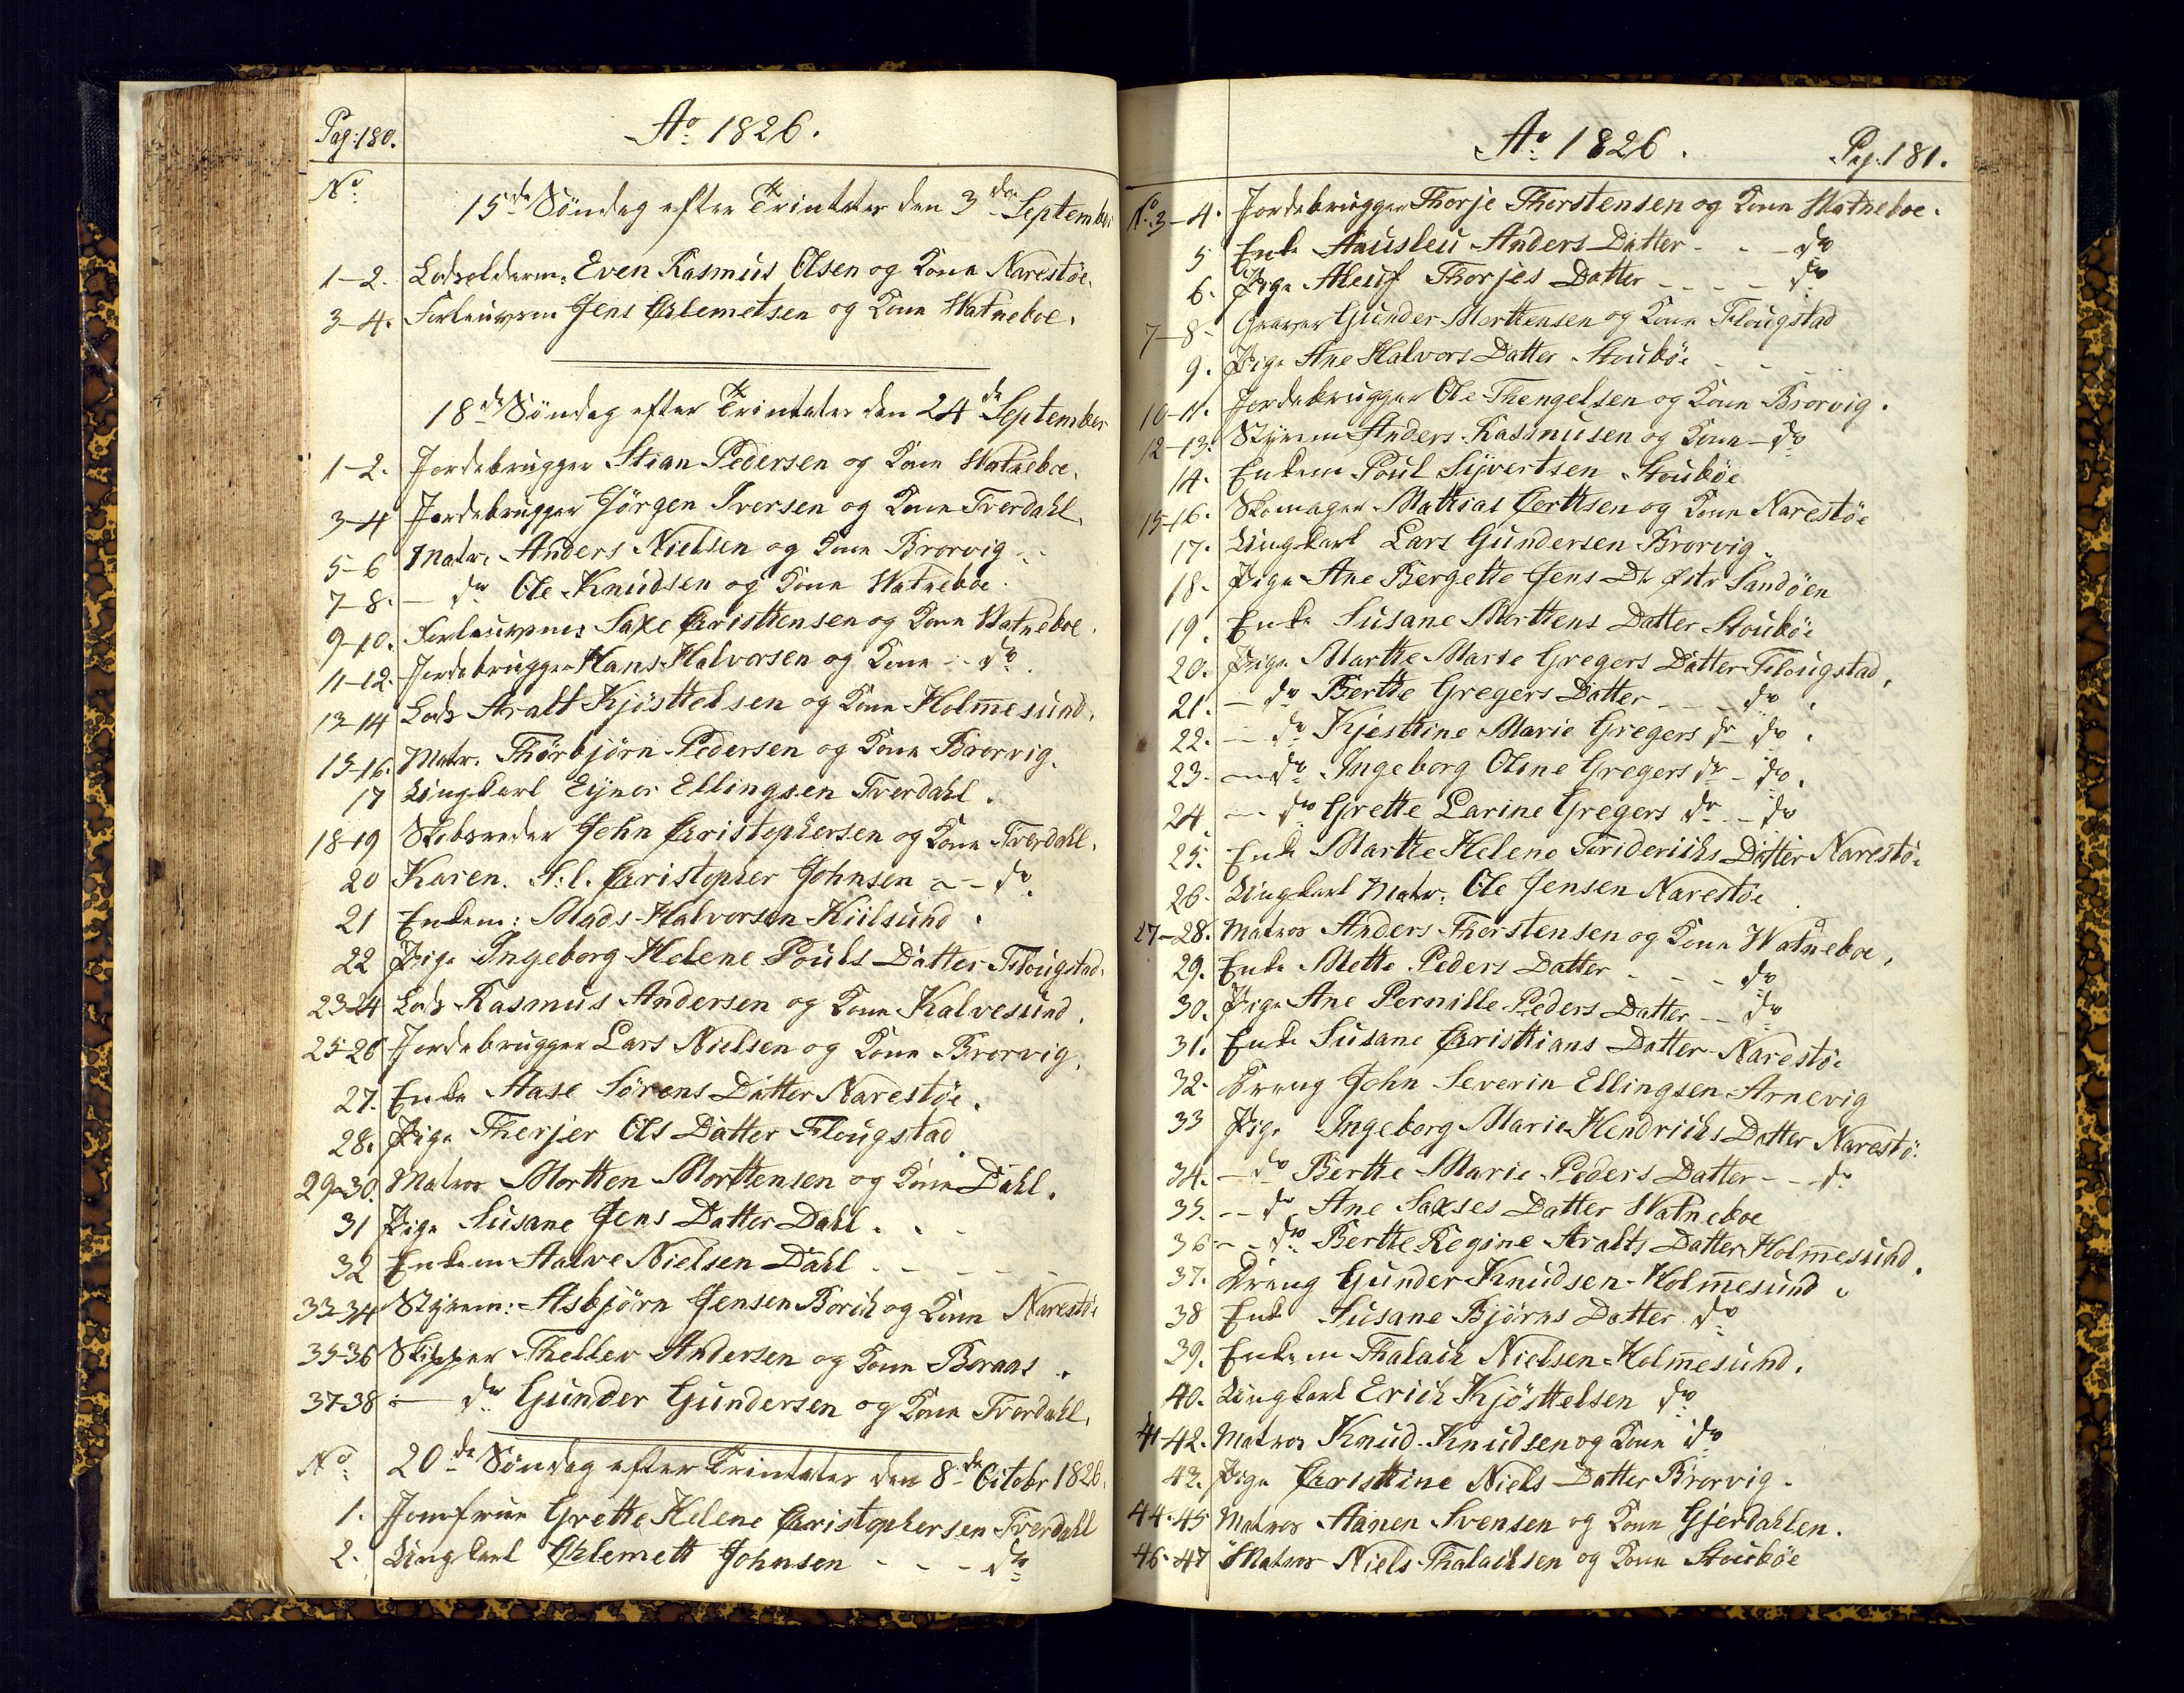 Pag: 180.
Ao 1826.
No
15de Søndag efter Trinitatis den 3de September
1-2. Lodsolderm: Even Rasmus Olsen og Kone Narestøe.
3-4. Jens Chlemetsen og Kone Watneboe.
18de Søndag efter Trinitatis den 24de September
1-2. Jordebrugger Stian Pedersen og Kone Watneboe.
3-4 Jordebrugger Jörgen Iversen og Kone Tverdahl.
5-6 Matr. Anders Nielsen og Kone Brorvig
7-8. - do Ole Knudsen og Kone Watneboe.
9-10. Saxe Christtensen og Kone Watneboe.
11-12. Jordebrugger Hans Halvorsen og Kone - do
13-14 Lods Aralt Kjösttelsen og Kone Holmesund.
15-16. Matr. Thorbjörn Pedersen og Kone Brorvig.
17 Ungkarl Eyner Ellingsen Tverdahl.
18-19 Skibsreder John Christophersen og Kone Tverdahl.
20 Karen S:l. Christopher Johnsen - - do
21 Enkem: Mads Halvorsen Kiilsund.
22 Pige Ingeborg Helene Pouls Datter Flougstad.
23-24 Lods Rasmus Andersen og Kone Kalvesund.
25-26 Jordebrugger Lars Nielsen og Kone Brorvig.
27. Enke Aase Sörens Datter Narestöe.
28. Pige Therjer Ols Datter Flougstad
29-30. Matros Mortten Morttensen og Kone Dahl.
31 Pige Susane Jens Datter Dahl.
32 Enkem Aalve Nielsen Dahl
33-34 Styrem: Asbjörn Jensen Borch og Kone Narestöe
35-36 Skipper Thellev Andersen og Kone Boraas.
37-38 - do Gunder Gundersen og Kone Tverdahl.
No 20de Søndag efter Trinitatis den 8de Octobr 1826.
1. Jomfrue Grette Helene Christophersen Tverdahl
2. Ungkarl Chlemett Johnsen - - - do
Ao 1826. Pag. 181.
No. 3-4. Jordebrugger Thorje Thorstensen og Kone Watneboe.
5 Enke Anders Datter - - do
6. Pige Thorjes Datter - - - - do
7-8. Gunder Morttensen og Kone Flougstad
9. Pige Ane Halvors Datter Stoubøe
10-11. Jordebrugger Ole Thengelsen og Kone Brorvig.
12-13. Styrem Anders Rasmusen og Kone - do
14. Enkem Poul Syvertsen Stouböe
15-16. Skomager Mathias Certtsen og Kone Narestöe
17. Ungkarl Lars Gundersen Brorvig
18. Pige Ane Bergette Jens Dr Østr Sandöen
19. Enke Susane Morttens Datter Stouböe
20. Pige Martte Marie Gregers Datter Flougstad,
21. - do Bertte Gregers Datter - - - do.
22. - do Kjesttine Marie Gregers dr do.
23. - do Ingeborg Oline Gregers dr - do.
24 - do Grette Larine Gregers dr - do
25. Enke Martte Helene Friderichs Datter Narestöe
26. Ungkarl Matr. Ole Jensen Narestöe
27-28. Matros Anders Thorstensen og Kone Watneboe,
29. Enke Mette Peders Datter - - - do
30. Pige Ane Pernille Peders Datter - - do
31. Enke Susane Christtians Datter Narestöe
32. Dreng John Severin Ellingsen Arnevig
33 Pige Ingeborg Marie Hendrichs Datter Narestö.
34. - do Bertte Marie Peders Datter - - do
35. - - do Ane Saxses Datter Watneboe
36 - - do Bertte Regine Aralts Datter Holmesund.
37. Dreng Gunder Knudsen Holmesund.
38 Enke Susane Björns Datter do
39. Enkem Thalach Nielsen Holmesund.
40. Ungkarl Erich Kjösttelsen do
41-42. Matros Knud Knudsen og Kone do
43. Pige Christtine Niels Datter Brorvig.
44-45 Matros Aanen Svensen og Kone Gjerdahlen.
46-47 Matros Niels Thalachsen og Kone Stouböe